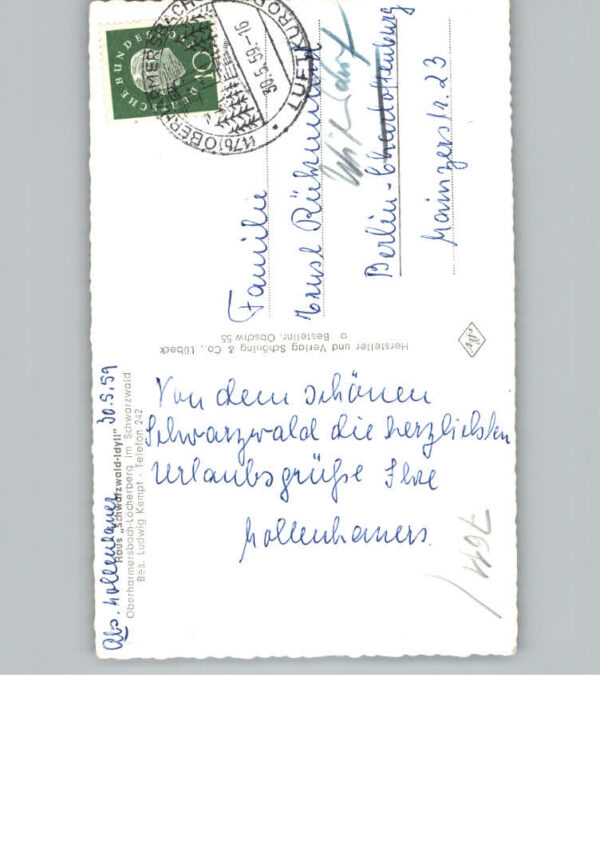 Haus „Schwarzwald-Idyll"
Oberharmersbach-Löcherberg im Schwarzwald
Bes. Ludwig Kempf - Telefon 242
Abs. Mollenhauer 30.5.59
Von dem schönen
Schwarzwald die herzlichsten
Urlaubsgrüße Ihre
Mollenhauers.
Hersteller und Verlag Schöning & Co., Lübeck
Bestellnr. Obschw. 55
DEUTSCHE BUNDESPOST
10
(17b) OBERHARMERSBACH
30.5.59.-16
LUFTKURORT
Familie
Ernst
Berlin-Charlottenburg
Mainzerstr. 23